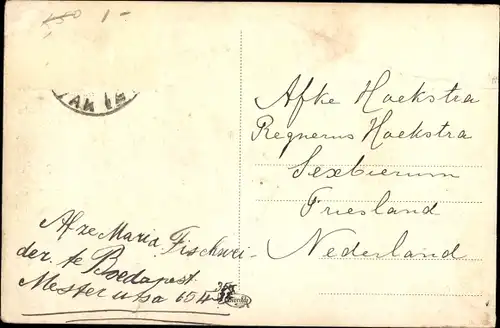 1-
Afke Hoekstra
Regnerus Hoekstra
Sexbierum
Friesland
Nederland
Afz. Maria Fischwei-
der. te Boedapest
Mester utsa 60